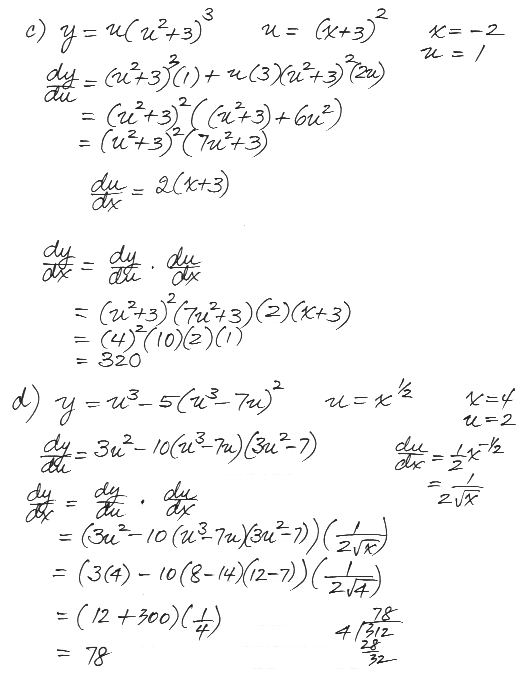 c) y = u(u²+3)³   u = (x+3)²   x = -2
u = 1
dy/du = (u²+3)³(1) + u(3)(u²+3)²(2u)
= (u²+3)²((u²+3)+6u²)
= (u²+3)²(7u²+3)
du/dx = 2(x+3)
dy/dx = dy/du · du/dx
= (u²+3)²(7u²+3)(2)(x+3)
= (4)²(10)(2)(1)
= 320
d) y = u³-5(u³-7u)²   u = x^½   x=4
u=2
dy/du = 3u²-10(u³-7u)(3u²-7)   du/dx = ½x^-½
= 1/(2√x)
dy/dx = dy/du · du/dx
= (3u²-10(u³-7u)(3u²-7))(1/(2√x))
= (3(4) - 10(8-14)(12-7))(1/(2√4))
= (12+300)(1/4)
= 78
78
4/312
28
32